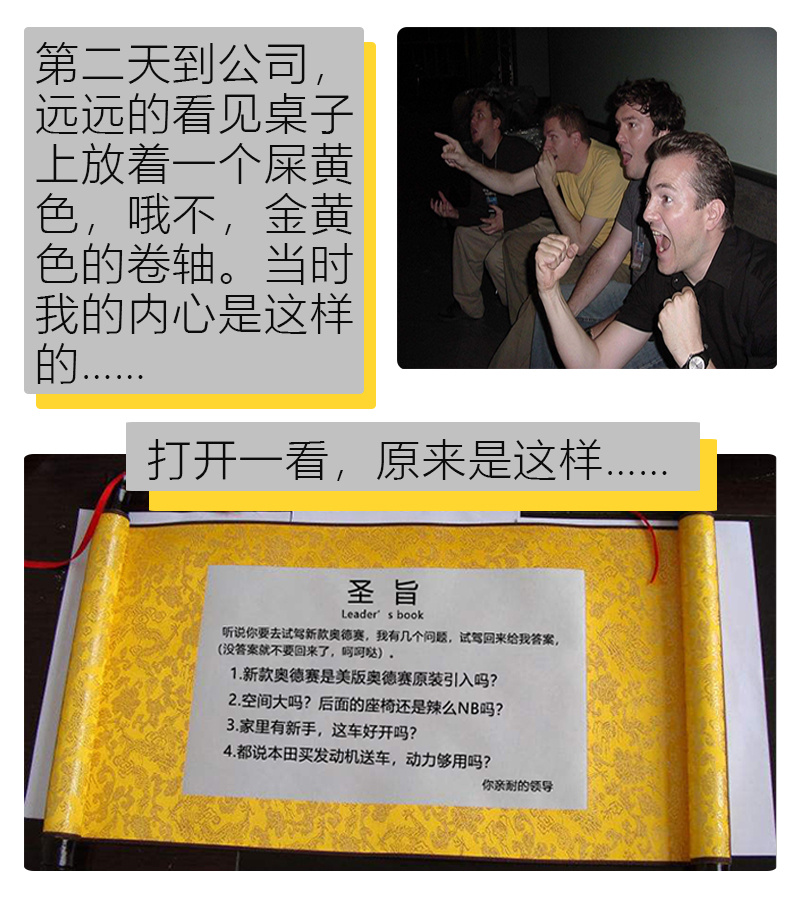 第二天到公司，
远远的看见桌子
上放着一个屎黄
色，哦不，金黄
色的卷轴。当时
我的内心是这样
的……
打开一看，原来是这样……
圣旨
Leader's book
听说你要去试驾新款奥德赛，我有几个问题，试驾回来给我答案，
（没答案就不要回来了，呵呵哒）。
1.新款奥德赛是美版奥德赛原装引入吗？
2.空间大吗？后面的座椅还是辣么NB吗？
3.家里有新手，这车好开吗？
4.都说本田买发动机送车，动力够用吗？
你亲耐的领导